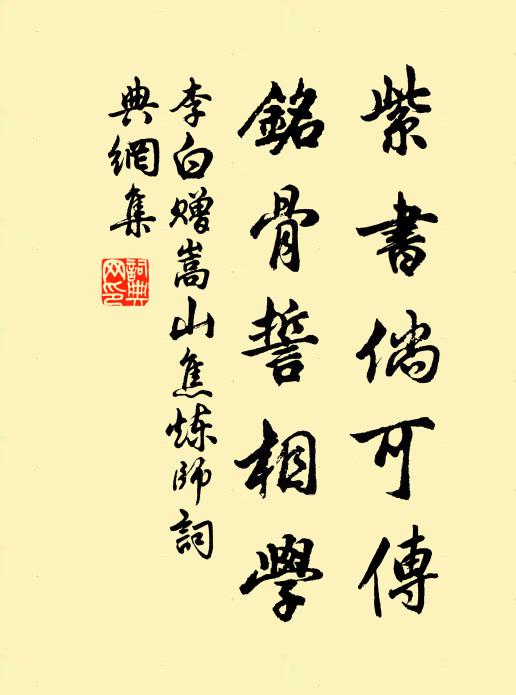 紫書倘可傳
銘骨誓相學
李白赠嵩山焦炼師詞
典網集
詞典
网印